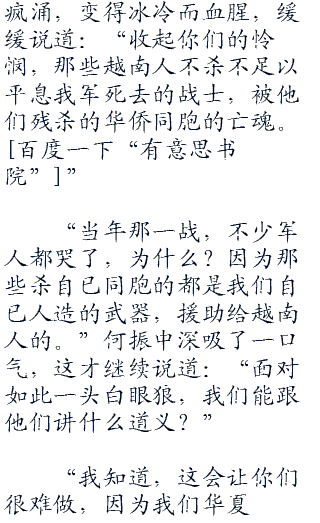 疯涌，变得冰冷而血腥，缓
缓说道：“收起你们的怜
悯，那些越南人不杀不足以
平息我军死去的战士，被他
们残杀的华侨同胞的亡魂。
[百度一下“有意思书
院”]”
“当年那一战，不少军
人都哭了，为什么？因为那
些杀自已同胞的都是我们自
已人造的武器，援助给越南
人的。”何振中深吸了一口
气，这才继续说道：“面对
如此一头白眼狼，我们能跟
他们讲什么道义？”
“我知道，这会让你们
很难做，因为我们华夏